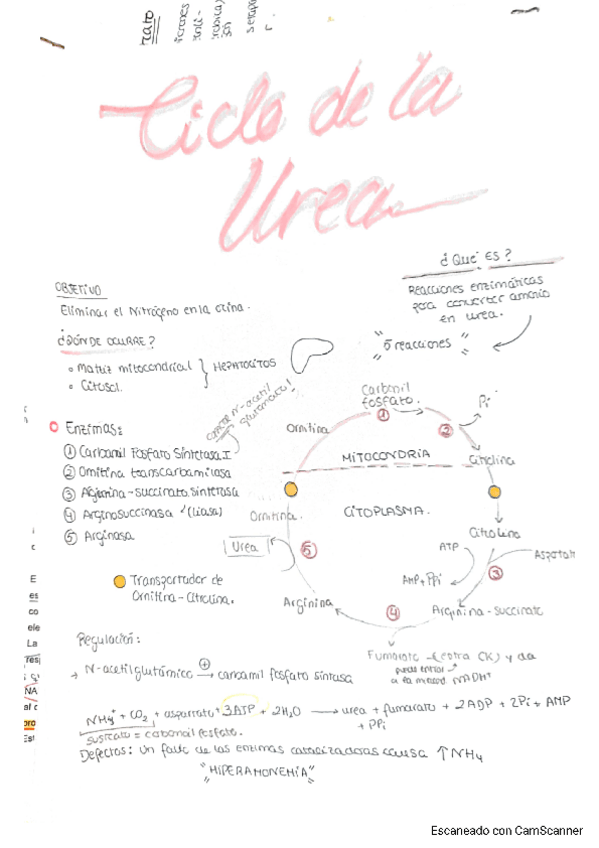 Ciclo de la
Urea
¿Qué ES?
Reacciones enzimáticas
para convertir amonio
en urea.
"5 reacciones"
OBJETIVO
Eliminar el Nitrógeno en la orina.
¿DÓNDE OCURRE?
• Matriz mitocondrial
• Citosol.
HEPATOCITOS
Enzimas:
① Carbamil Fosfato Sintetasa I
② Ornitina transcarbamilasa
③ Arginina-succinato sintetasa
④ Arginosuccinasa (liasa)
⑤ Arginasa
Transportador de
Ornitina-Citrulina.
Carbamil
fosfato.
①
②
Pi
Ornitina
MITOCONDRIA
Citrulina
Ornitina.
CITOPLASMA.
Citrulina
Urea
⑤
ATP
Aspartato
AMP+PPi
③
Arginina
④
Arginina-succinato
Fumarato
(entra CK) y da
puede entrar
a la mitocond NADH
Regulación:
→ N-acetilglutámico ⊕→ carbamil fosfato sintasa
NH4+ + CO2 + aspartato + 3ATP + 2H2O → urea + fumarato + 2ADP + 2Pi + AMP
+ PPi
sustrato = carbamil fosfato.
Defectos: Un fallo de las enzimas catalizadoras causa ↑NH4
"HIPERAMONEMIA"
Escaneado con CamScanner